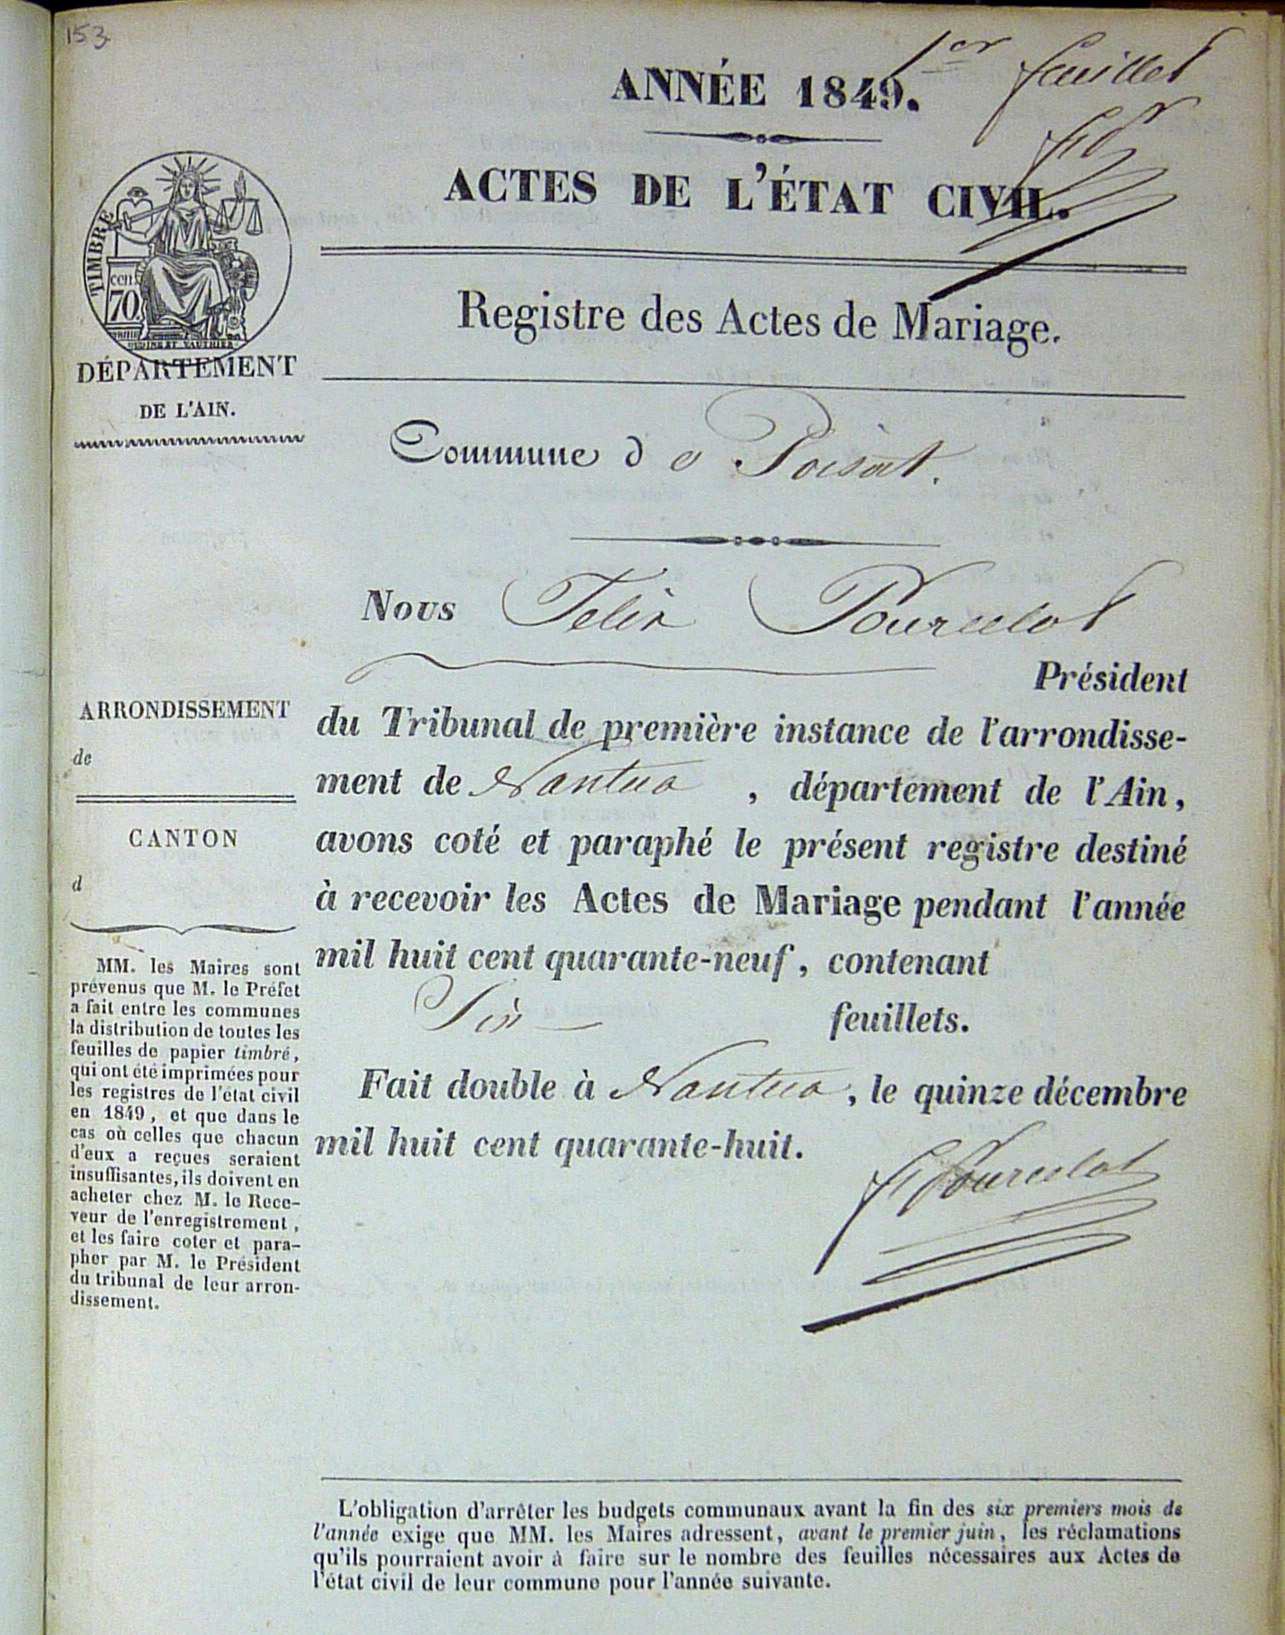 153
1er feuillet
ANNÉE 1849.
ACTES DE L'ÉTAT CIVIL.
TIMBRE
cen
70
DÉPARTEMENT
DE L'AIN.
Registre des Actes de Mariage.
Commune de Poisat.
Nous Félix Pourcelot
Président
du Tribunal de première instance de l'arrondisse-
ment de Nantua, département de l'Ain,
avons coté et paraphé le présent registre destiné
à recevoir les Actes de Mariage pendant l'année
mil huit cent quarante-neuf, contenant
Six feuillets.
Fait double à Nantua, le quinze décembre
mil huit cent quarante-huit.
F Pourcelot
ARRONDISSEMENT
de
CANTON
d
MM. les Maires sont
prévenus que M. le Préfet
a fait entre les communes
la distribution de toutes les
feuilles de papier timbré,
qui ont été imprimées pour
les registres de l'état civil
en 1849, et que dans le
cas où celles que chacun
d'eux a reçues seraient
insuffisantes, ils doivent en
acheter chez M. le Rece-
veur de l'enregistrement,
et les faire coter et para-
pher par M. le Président
du tribunal de leur arron-
dissement.
L'obligation d'arrêter les budgets communaux avant la fin des six premiers mois de
l'année exige que MM. les Maires adressent, avant le premier juin, les réclamations
qu'ils pourraient avoir à faire sur le nombre des feuilles nécessaires aux Actes de
l'état civil de leur commune pour l'année suivante.